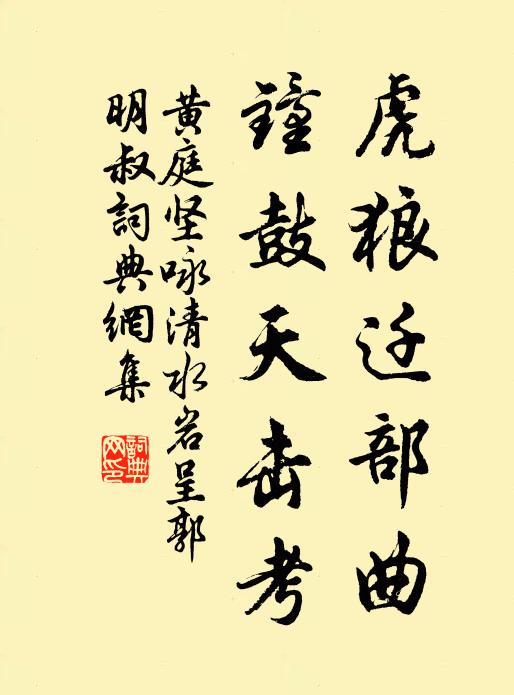 虎狼迁部曲
鐘鼓天击考
黄庭坚咏清水岩呈郭
明叔詞典網集
詞典网印